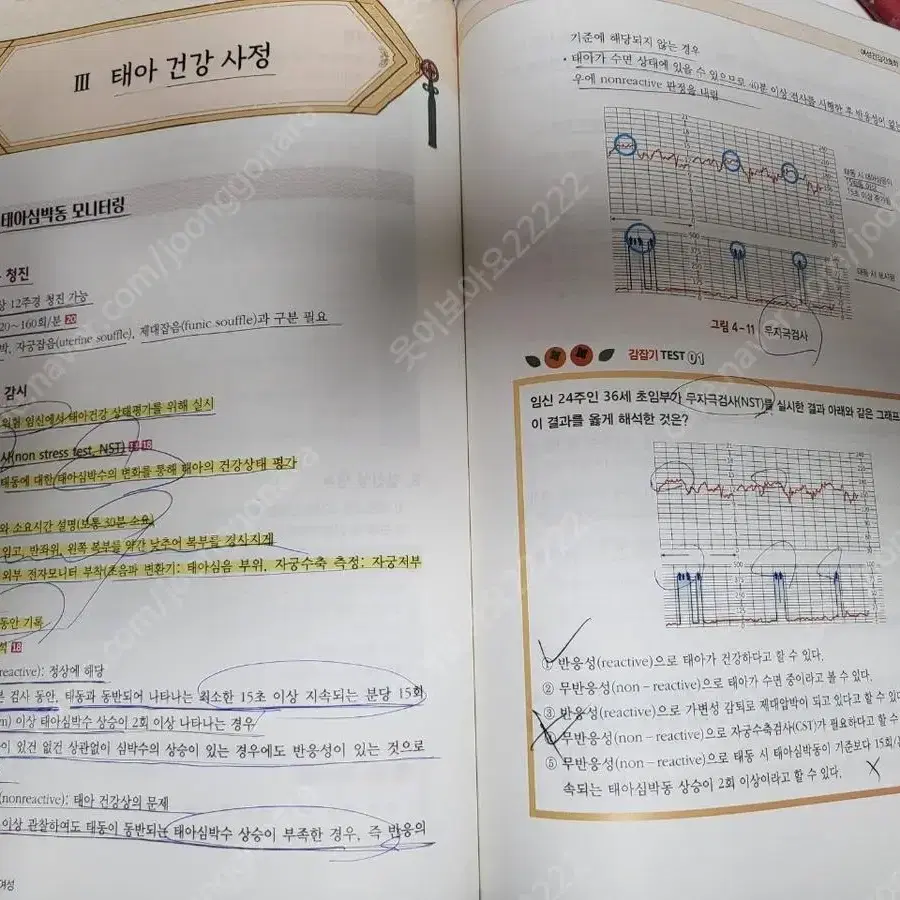 Ⅲ 태아 건강 사정
태아심박동 모니터링
청진
12주경 청진 가능
20~160회/분 20
자궁잡음(uterine souffle), 제대잡음(funic souffle)과 구분 필요
감시
임신에서 태아건강 상태평가를 위해 실시
(non stress test, NST) 18
태동에 대한 태아심박수의 변화를 통해 태아의 건강상태 평가
와 소요시간 설명(보통 30분 소요)
반좌위, 왼쪽 복부를 약간 낮추어 복부를 경사지게
외부 전자모니터 부착(초음파 변환기: 태아심음 부위, 자궁수축 측정: 자궁저부
동안 기록
석 18
reactive): 정상에 해당
검사 동안, 태동과 동반되어 나타나는 최소한 15초 이상 지속되는 분당 15회
m) 이상 태아심박수 상승이 2회 이상 나타나는 경우
이 있건 없건 상관없이 심박수의 상승이 있는 경우에도 반응성이 있는 것으로
(nonreactive): 태아 건강상의 문제
이상 관찰하여도 태동이 동반되는 태아심박수 상승이 부족한 경우, 즉 반응의
여성
여성건강간호학
기준에 해당되지 않는 경우
• 태아가 수면 상태에 있을 수 있으므로 40분 이상 검사를 시행한 후 반응성이 없는
우에 nonreactive 판정을 내림
그림 4-11 무자극검사
감잡기 TEST 01
임신 24주인 36세 초임부가 무자극검사(NST)를 실시한 결과 아래와 같은 그래프
이 결과를 옳게 해석한 것은?
① 반응성(reactive)으로 태아가 건강하다고 할 수 있다.
② 무반응성(non-reactive)으로 태아가 수면 중이라고 볼 수 있다.
③ 반응성(reactive)으로 가변성 감퇴로 제대압박이 되고 있다고 할 수 있다
④ 무반응성(non-reactive)으로 자궁수축검사(CST)가 필요하다고 할 수
⑤ 무반응성(non-reactive)으로 태동 시 태아심박동이 기준보다 15회/
속되는 태아심박동 상승이 2회 이상이라고 할 수 있다.